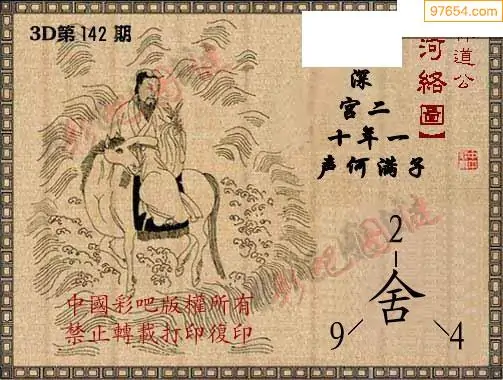 97654.com
3D第142期
道公
河絡圖】
深
宫二
十年一
声何满子
2
舍
9
4
中國彩吧版權所有
禁止轉載打印復印